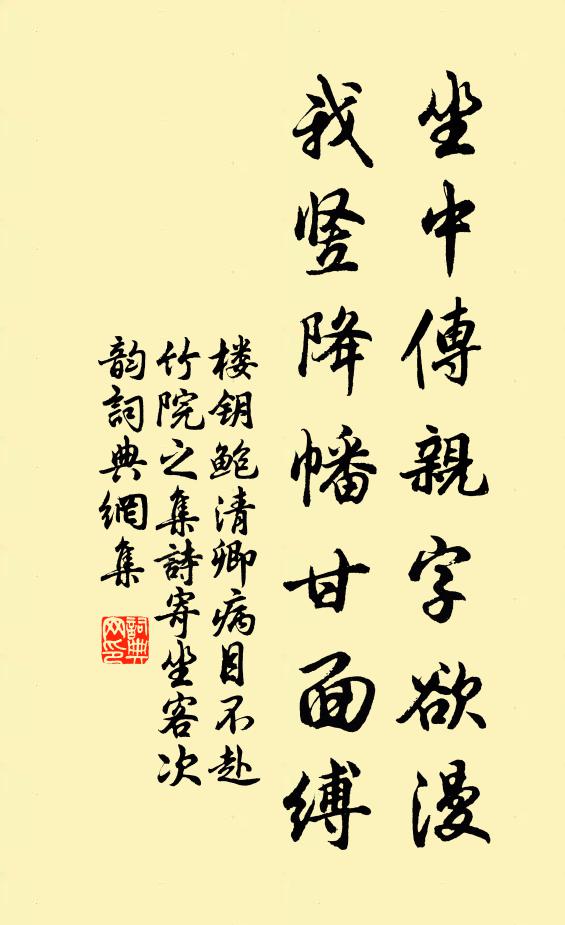 坐中傳親字欲漫
我竖降幡甘面縛
楼钥鲍清卿病目不赴
竹院之集詩寄坐客次
韵詞典網集
詞典
网印